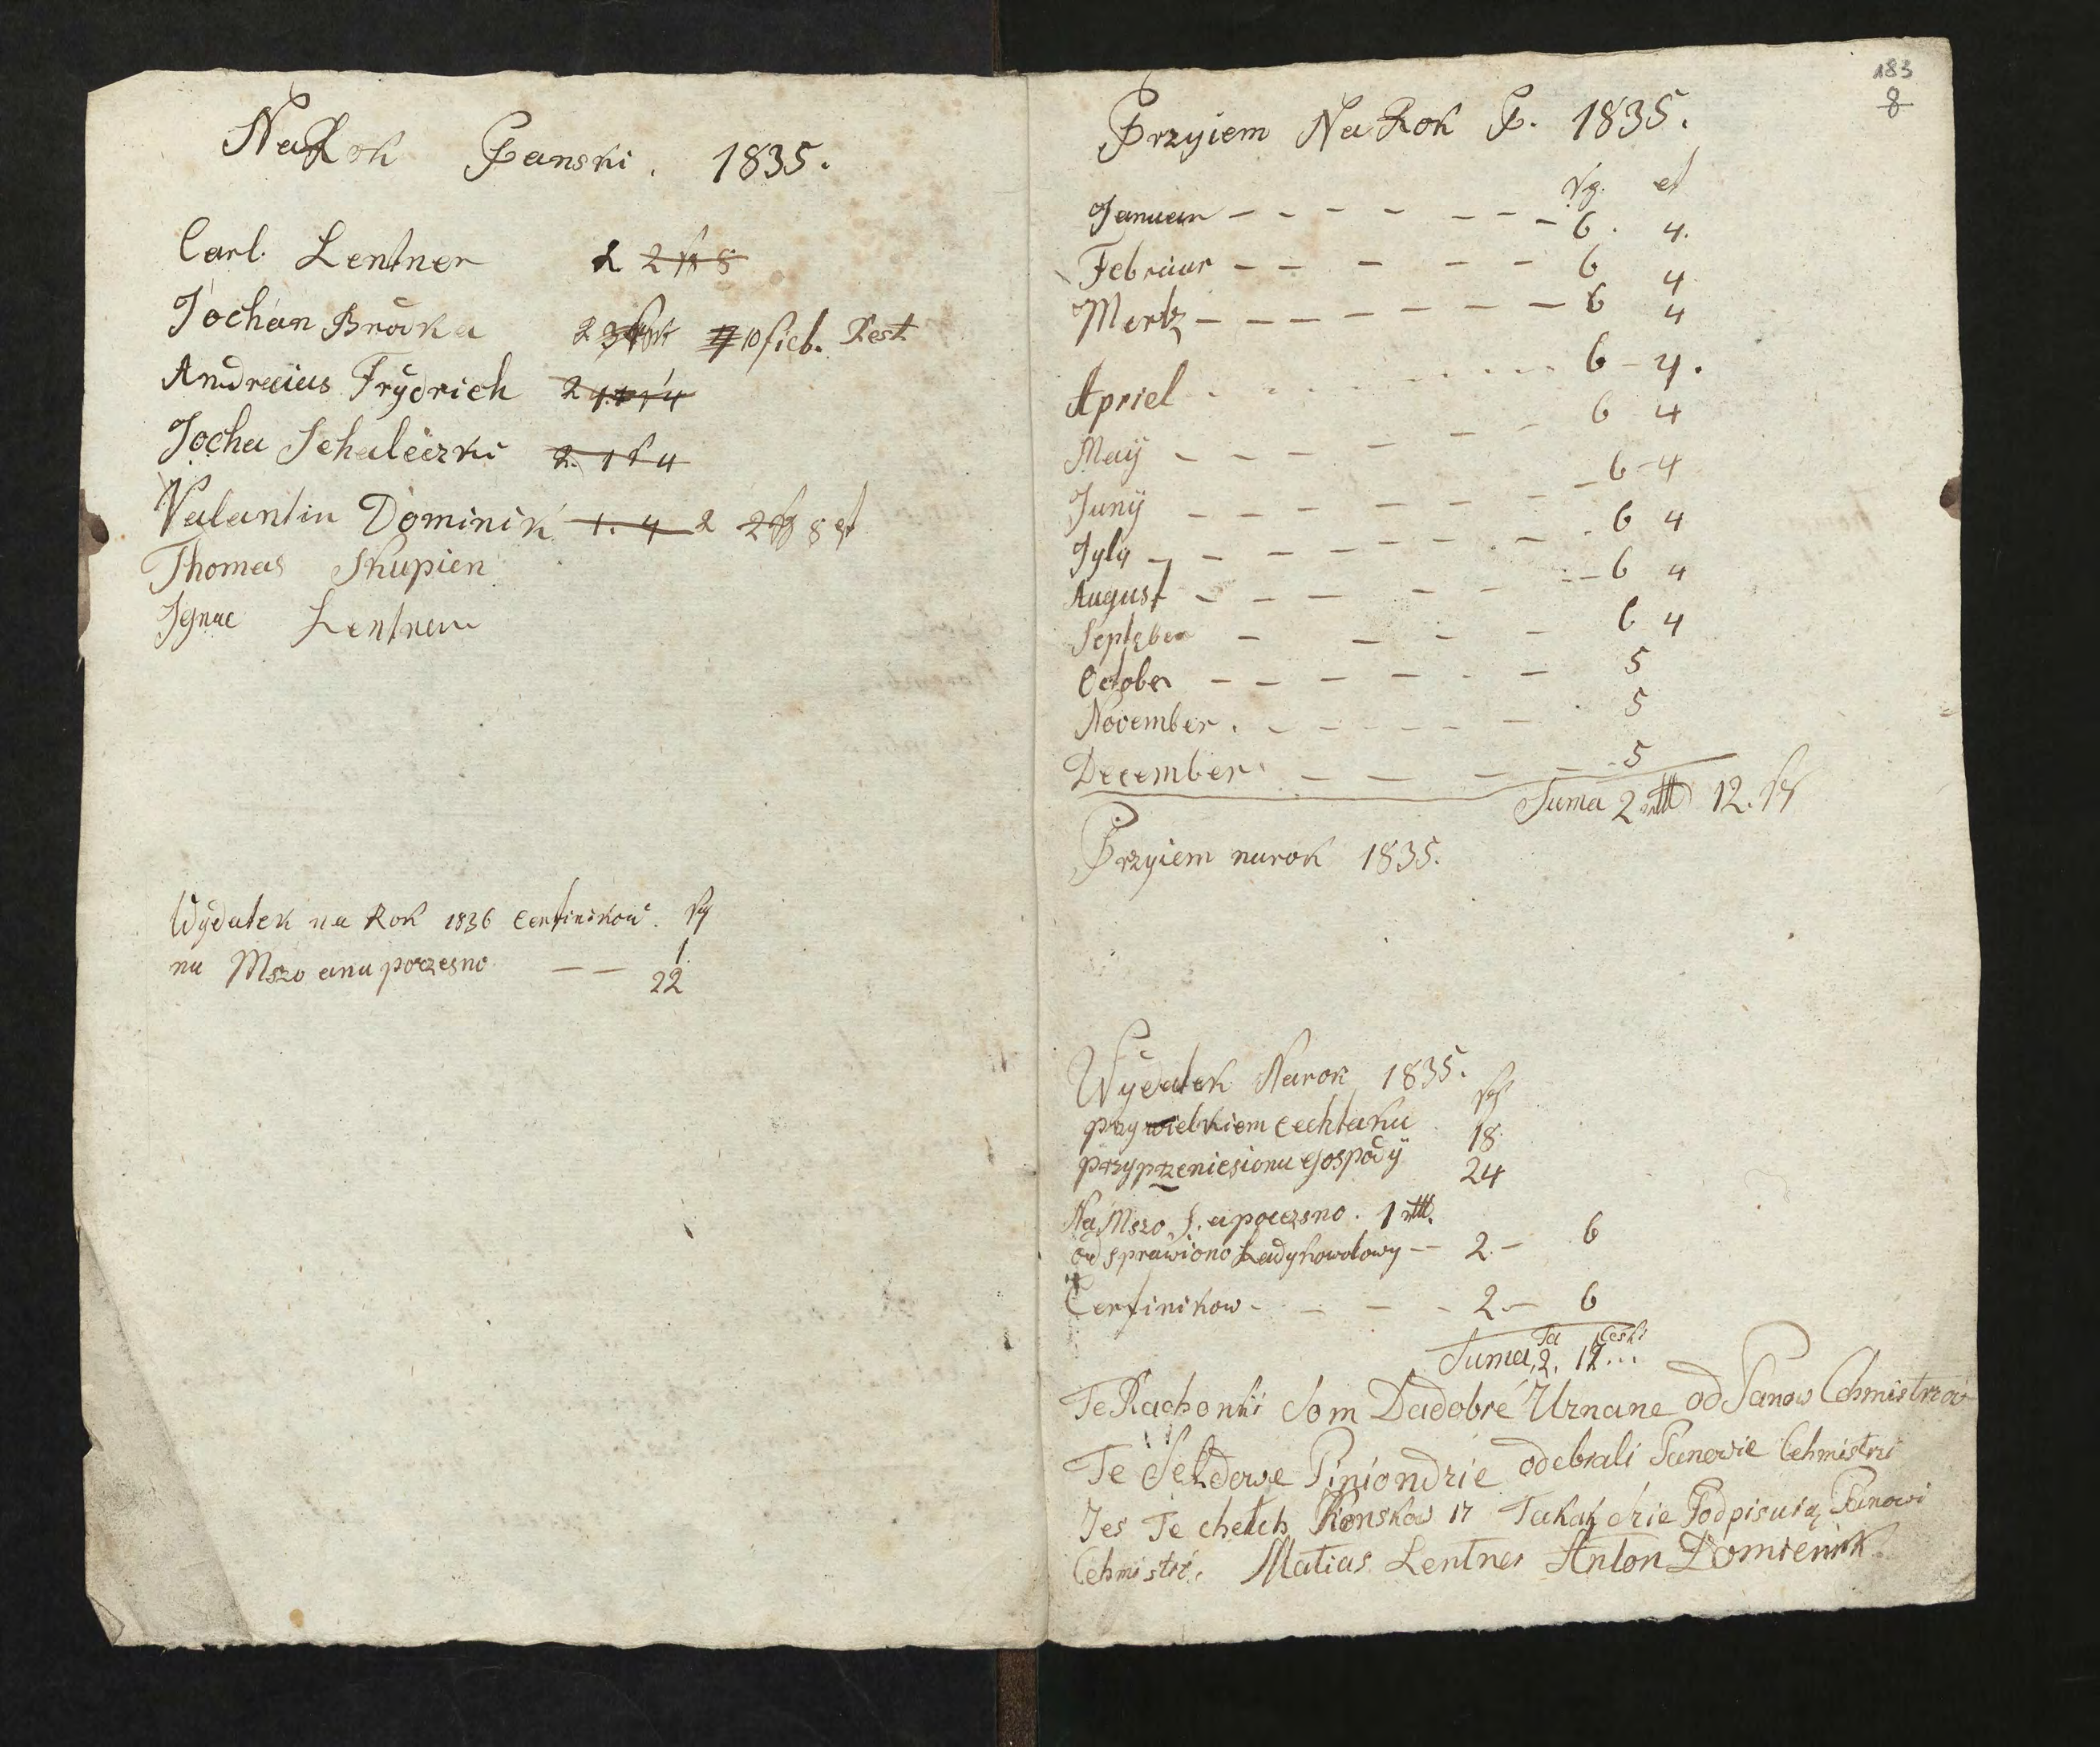 Na Rok Panski. 1835.
Carl. Lentner 2 2 8
Jochan Brodka 2 10 fieb. Rest
Andreaius Frydrich 2
Jocha Schaleczki 2. 1 4
Valantin Dominik 1. 4 2 2 8
Thomas Skupien
Ignac Lentner
Wydatek na Rok 1836 Certinikow. sg
1
na Mszo ana poczesne — — 22
183
8
Przyiem Na Rok P. 1835.
sg.
Januar – – – – – – – 6. 4.
Februar – – – – – 6 4
Mertz – – – – – – – 6 4
Apriel . . . . . . . . 6 – 4.
May – – – – – – 6 4
Juny – – – – – – – 6 – 4
Jyly – – – – – – – . – . 6 4
August – – – – – – 6 4
September – – – – 6 4
October – – – – . – 5
November . – – – – – – 5
December – – – – 5
Suma 2 rtl 12. sg
Przyiem na rok 1835.
Wydatek Narok 1835.
sg
przy wielkiem cechtaku 18
przy przeniesionu Gospody 24
Na Mszo S. a poczesno. 1 rtl.
od sprawiono Ladykowotowy — 2. – 6
Certinikow – – – – 2. – 6
Suma, 2. 12...
Te Rachonki Som Dadobre Uznane od Panow Cehmistrzow
Te Seldowe Piniondzie odebrali Panowie Cehmistrzi
Jes Te
17 Podpisuią Panowi
Cehmistri. Matias Lentner Anton Domienik